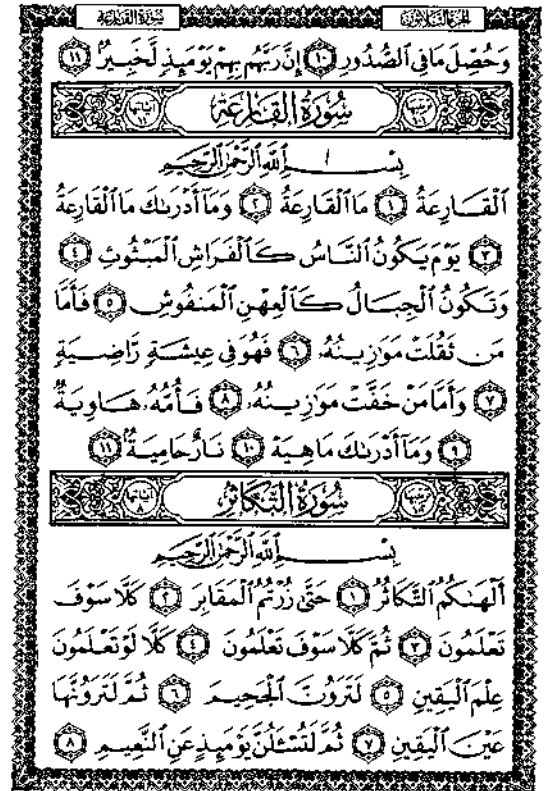 سُورَةُ القَارِعَة الجُزءُ الثَّلَاثُونَ
وَحُصِّلَ مَا فِي ٱلصُّدُورِ ١٠ إِنَّ رَبَّهُم بِهِمْ يَوْمَئِذٍ لَّخَبِيرٌۢ ١١
سُورَةُ القَارِعَةِ
بِسْمِ ٱللَّهِ ٱلرَّحْمَٰنِ ٱلرَّحِيمِ
ٱلْقَارِعَةُ ١ مَا ٱلْقَارِعَةُ ٢ وَمَآ أَدْرَىٰكَ مَا ٱلْقَارِعَةُ
٣ يَوْمَ يَكُونُ ٱلنَّاسُ كَٱلْفَرَاشِ ٱلْمَبْثُوثِ ٤
وَتَكُونُ ٱلْجِبَالُ كَٱلْعِهْنِ ٱلْمَنفُوشِ ٥ فَأَمَّا
مَن ثَقُلَتْ مَوَٰزِينُهُۥ ٦ فَهُوَ فِي عِيشَةٍ رَّاضِيَةٍ
٧ وَأَمَّا مَنْ خَفَّتْ مَوَٰزِينُهُۥ ٨ فَأُمُّهُۥ هَاوِيَةٌ
٩ وَمَآ أَدْرَىٰكَ مَا هِيَهْ ١٠ نَارٌ حَامِيَةٌۢ ١١
سُورَةُ التَّكَاثُرِ
بِسْمِ ٱللَّهِ ٱلرَّحْمَٰنِ ٱلرَّحِيمِ
أَلْهَىٰكُمُ ٱلتَّكَاثُرُ ١ حَتَّىٰ زُرْتُمُ ٱلْمَقَابِرَ ٢ كَلَّا سَوْفَ
تَعْلَمُونَ ٣ ثُمَّ كَلَّا سَوْفَ تَعْلَمُونَ ٤ كَلَّا لَوْ تَعْلَمُونَ
عِلْمَ ٱلْيَقِينِ ٥ لَتَرَوُنَّ ٱلْجَحِيمَ ٦ ثُمَّ لَتَرَوُنَّهَا
عَيْنَ ٱلْيَقِينِ ٧ ثُمَّ لَتُسْـَٔلُنَّ يَوْمَئِذٍ عَنِ ٱلنَّعِيمِ ٨